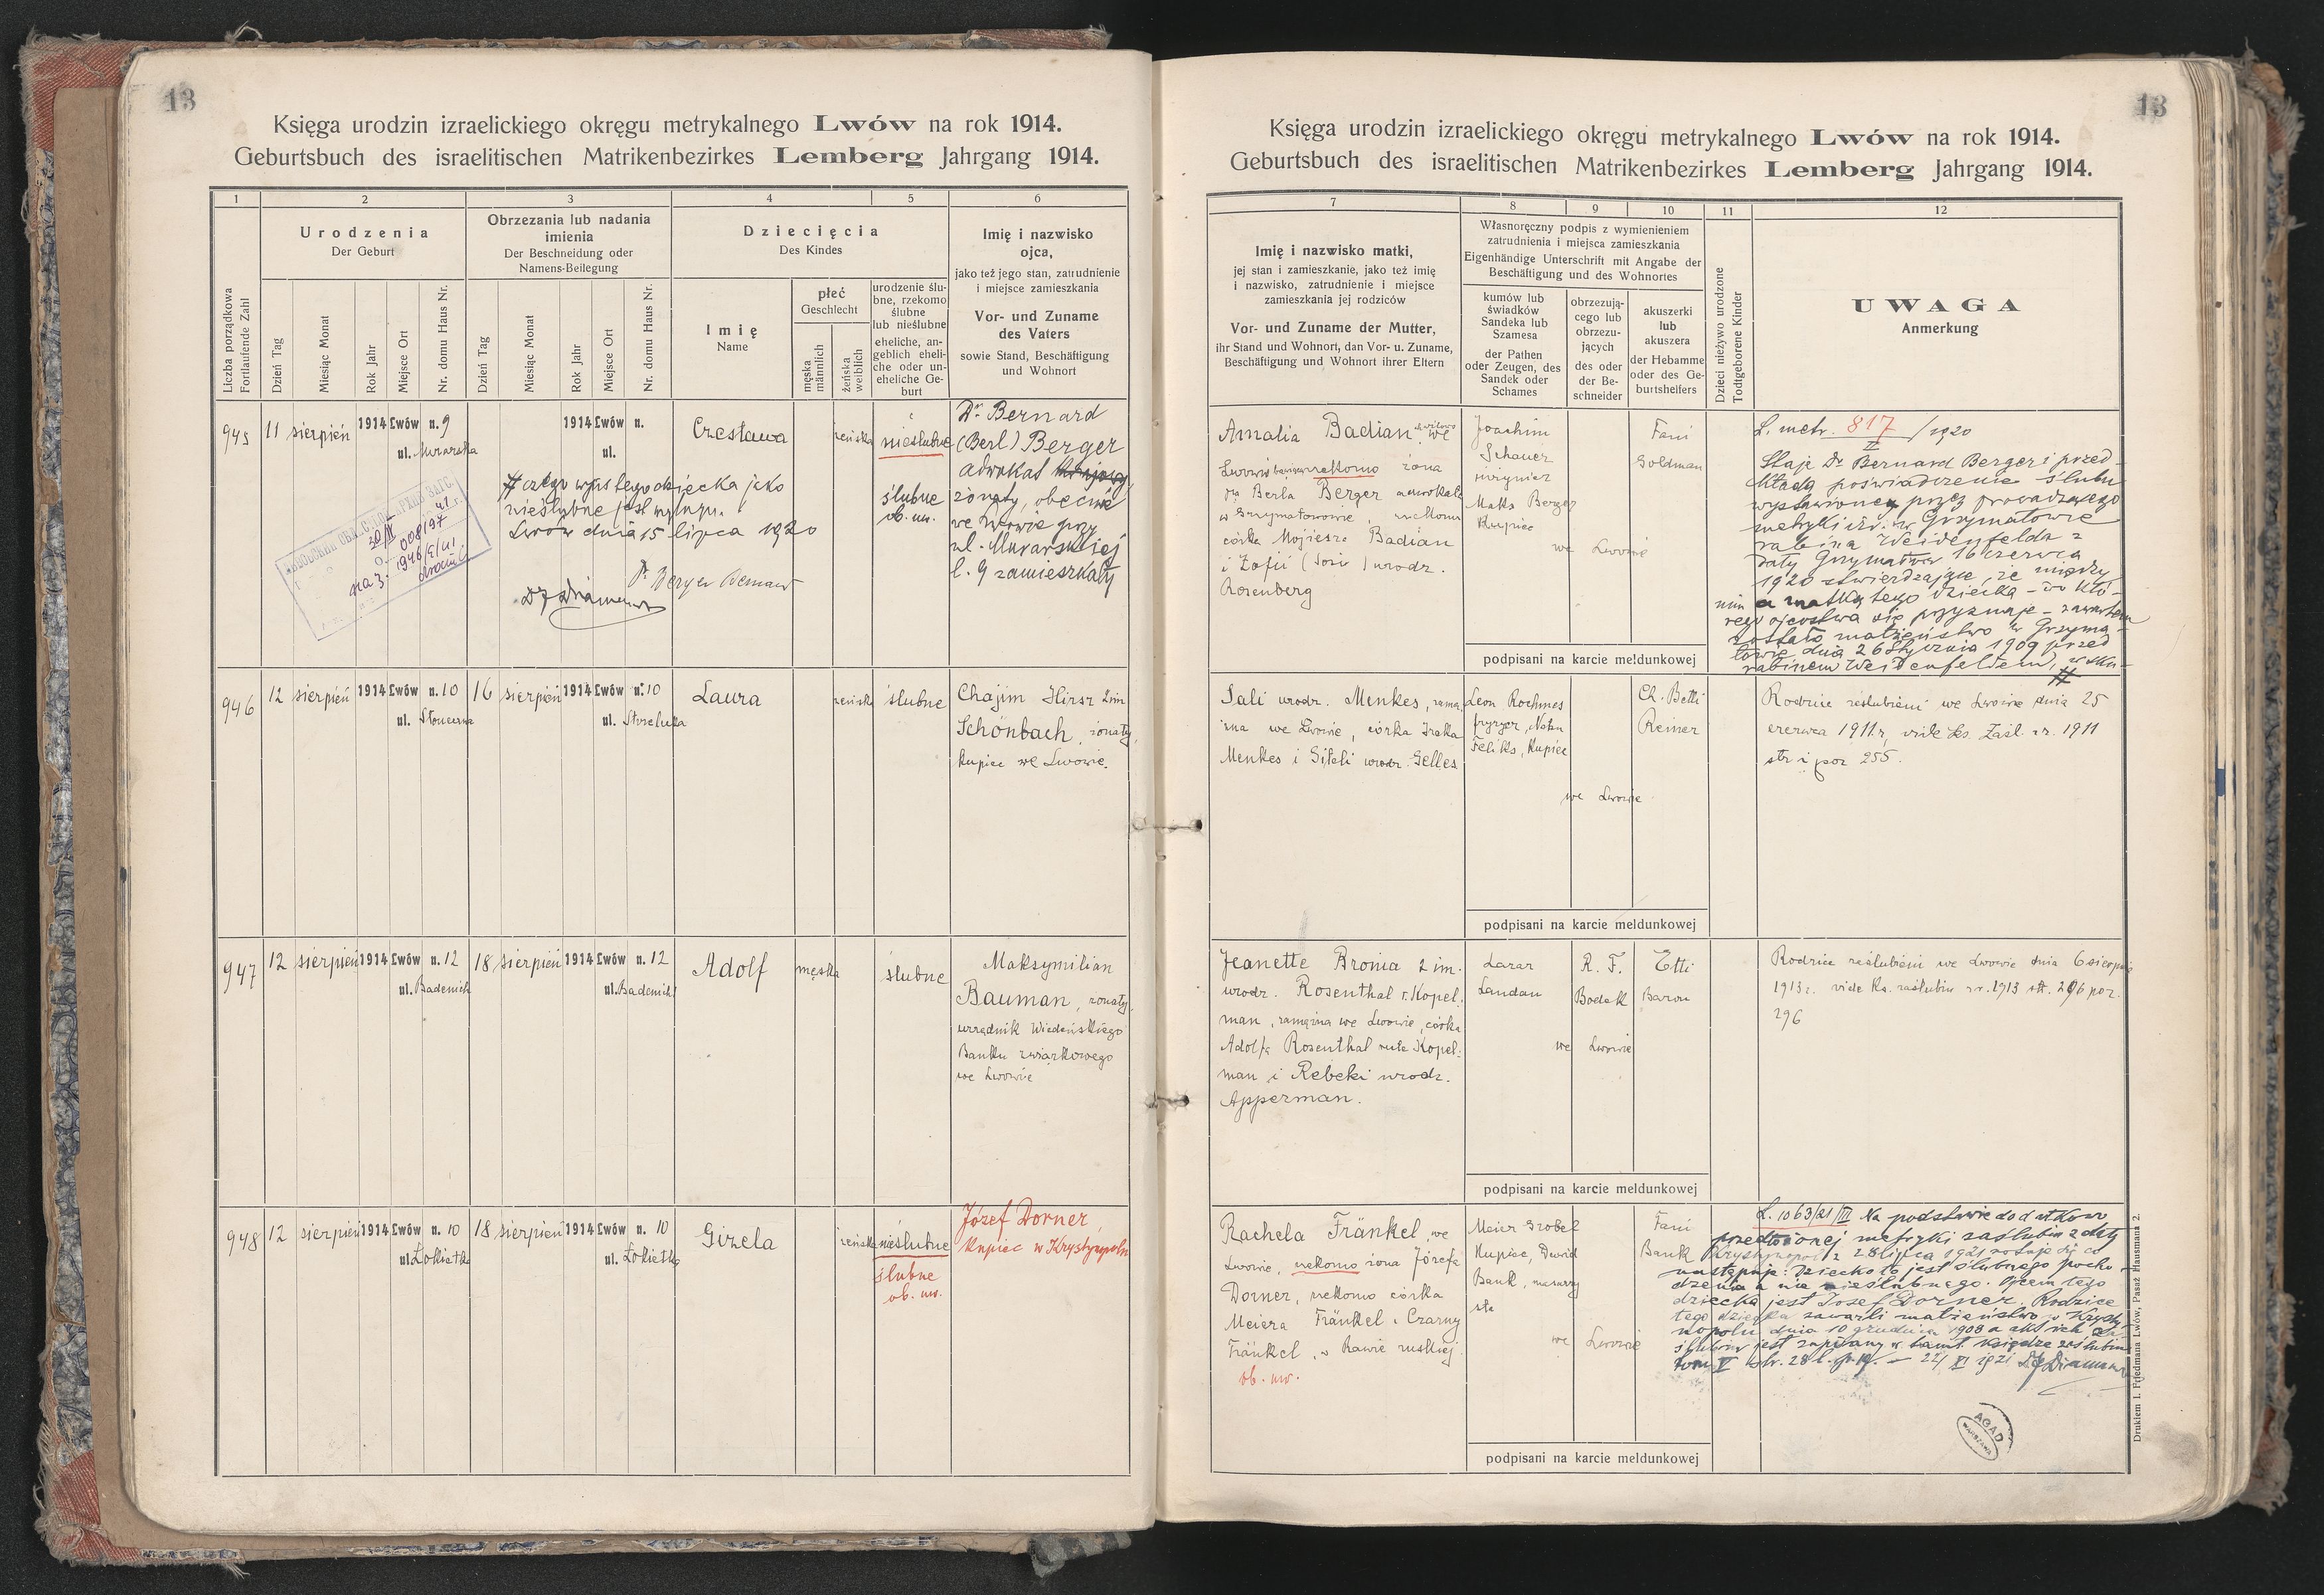 13
Księga urodzin izraelickiego okręgu metrykalnego Lwów na rok 1914.
Geburtsbuch des israelitischen Matrikenbezirkes Lemberg Jahrgang 1914.
1
2
3
4
5
6
Liczba porządkowa
Fortlaufende Zahl
Urodzenia
Der Geburt
Dzień Tag
Miesiąc Monat
Rok Jahr
Miejsce Ort
Nr. domu Haus Nr.
Obrzezania lub nadania
imienia
Der Beschneidung oder
Namens-Beilegung
Dzień Tag
Miesiąc Monat
Rok Jahr
Miejsce Ort
Nr. domu Haus Nr.
Dziecięcia
Des Kindes
Imię
Name
płeć
Geschlecht
męska
männlich
żeńska
weiblich
urodzenie ślu-
bne, rzekomo
ślubne
lub nieślubne
eheliche, an-
geblich eheli-
che oder un-
eheliche Ge-
burt
Imię i nazwisko
ojca,
jako też jego stan, zatrudnienie
i miejsce zamieszkania
Vor- und Zuname
des Vaters
sowie Stand, Beschäftigung
und Wohnort
945
11 sierpień 1914 Lwów n. 9
ul. Murarska
1914 Lwów n.
ul.
Czesława
żeńska
nieślubne
ślubne
ob. uw.
Dr Bernard
(Berl) Berger
adwokat
żonaty, obecnie
we Lwowie przy
ul. Murarskiej
l. 9 zamieszkały
# czego wpis tego dziecka jako
nieślubne jest mylnym.
Lwów dnia 15 lipca 1920
Dr Berger Bernard
946
12 sierpień 1914 Lwów n. 10
ul. Słoneczna
16 sierpień 1914 Lwów n. 10
ul.
Laura
żeńska
ślubne
Chajim Hirsz 2 im
Schönbach, żonaty,
kupiec we Lwowie.
947
12 sierpień 1914 Lwów n. 12
ul. Badenich
18 sierpień 1914 Lwów n. 12
ul. Badenich
Adolf
męska
ślubne
Maksymilian
Bauman, żonaty,
urzędnik Wiedeńskiego
Banku związkowego
we Lwowie
948
12 sierpień 1914 Lwów n. 10
ul. Łokietka
18 sierpień 1914 Lwów n. 10
ul. Łokietka
Gizela
żeńska
nieślubne
ślubne
ob. uw.
Józef Dorner,
kupiec w Krystynopolu
13
Księga urodzin izraelickiego okręgu metrykalnego Lwów na rok 1914.
Geburtsbuch des israelitischen Matrikenbezirkes Lemberg Jahrgang 1914.
7
8
9
10
11
12
Imię i nazwisko matki,
jej stan i zamieszkanie, jako też imię
i nazwisko, zatrudnienie i miejsce
zamieszkania jej rodziców
Vor- und Zuname der Mutter,
ihr Stand und Wohnort, dan Vor- u. Zuname,
Beschäftigung und Wohnort ihrer Eltern
Własnoręczny podpis z wymienieniem
zatrudnienia i miejsca zamieszkania
Eigenhändige Unterschrift mit Angabe der
Beschäftigung und des Wohnortes
kumów lub
świadków
Sandeka lub
Szamesa
der Pathen
oder Zeugen, des
Sandek oder
Schames
obrzezują-
cego lub
obrzezu-
jących
des oder
der Be-
schneider
akuszerki
lub
akuszera
der Hebamme
oder des Ge-
burtshelfers
Dzieci nieżywo urodzone
Todtgeborene Kinder
UWAGA
Anmerkung
Amalia Badian, we
Lwowie rzekomo żona
dra Berla Berger adwokata
w Grzymałowie, rzekoma
córka Mojżesza Badian
i Zofii (Sosi) urodz.
Rosenberg
Joachim
Schauer
inżynier
Maks Berger
kupiec
we Lwowie
Fani
Goldman
podpisani na karcie meldunkowej
L. metr. 817/1920
V
Staje Dr Bernard Berger i przed-
kłada poświadczenie ślubu
wystawione przez prowadzącego
metryki izr. w Grzymałowie
rabina Weidenfelda z
daty Grzymałów 16 czerwca
1920 stwierdzające, że między
nim a matką tego dziecka - do któ-
rego ojcostwa się przyznaje - zawartem
zostało małżeństwo w Grzyma-
łowie dnia 26 stycznia 1909 przed
rabinem Weidenfeldem, w sku-
#
Sali urodz. Menkes, zamę-
żna we Lwowie, córka Izaka
Menkes i Giteli urodz. Gelles
Leon Rochmes
fryzjer, Natan
Feliks, kupiec
we Lwowie
Ch. Betti
Reiner
podpisani na karcie meldunkowej
Rodzice zaślubieni we Lwowie dnia 25
czerwca 1911 r, vide ks. zaśl. z r. 1911
str i poz 255.
Jeanette Bronia 2 im.
urodz. Rosenthal r. Kopel-
man, zamężna we Lwowie, córka
Adolfa Rosenthal recte Kopel-
man i Rebeki urodz.
Apperman.
Lazar
Landau
R. F.
Bodek
we Lwowie
Etti
Baron
podpisani na karcie meldunkowej
Rodzice zaślubieni we Lwowie dnia 6 sierpnia
1913 r. vide ks. zaślubin z r. 1913 str. 296 poz.
296
Rachela Fränkel, we
Lwowie, rzekomo żona Józefa
Dorner, rzekomo córka
Meiera Fränkel i Czarny
Fränkel, w Rawie ruskiej.
ob. uw.
Meier Grobel
kupiec, Dawid
Bank,
we Lwowie
Fani
Bank
podpisani na karcie meldunkowej
L. 1063/21/III Na podstawie dodatkowo
przedłożonej metryki zaślubin z daty
Krystynopol z 28 lipca 1921 notuje się co
następuje: Dziecko to jest ślubnego pocho-
dzenia a nie nieślubnego. Ojcem tego
dziecka jest Josef Dorner. Rodzice
tego dziecka zawarli małżeństwo w Krysty-
nopolu dnia 10 grudnia 1908 a akt ich za-
ślubin jest zapisany w tamt. księdze zaślubin
tom V str. 28
AGAD
WARSZAWA
Drukiem I. Friedmana Lwów, Pasaż Hausmana 2.